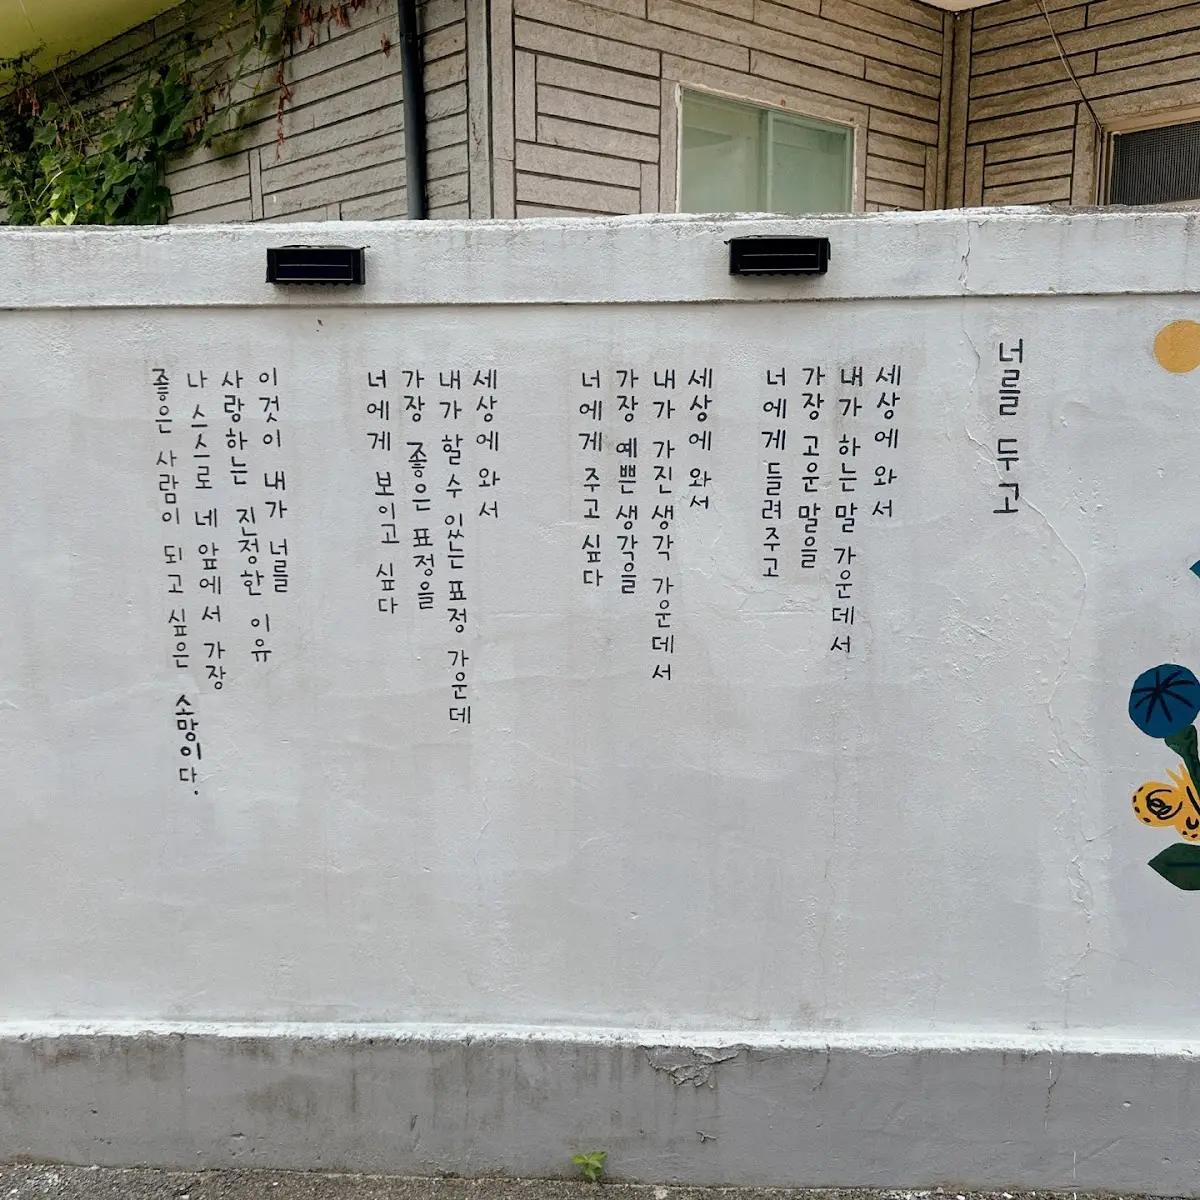 너를 두고
세상에 와서
내가 하는 말 가운데서
가장 고운 말을
너에게 들려주고
세상에 와서
내가 가진 생각 가운데서
가장 예쁜 생각을
너에게 주고 싶다
세상에 와서
내가 할 수 있는 표정 가운데
가장 좋은 표정을
너에게 보이고 싶다
이것이 내가 너를
사랑하는 진정한 이유
나 스스로 네 앞에서 가장
좋은 사람이 되고 싶은 소망이다.